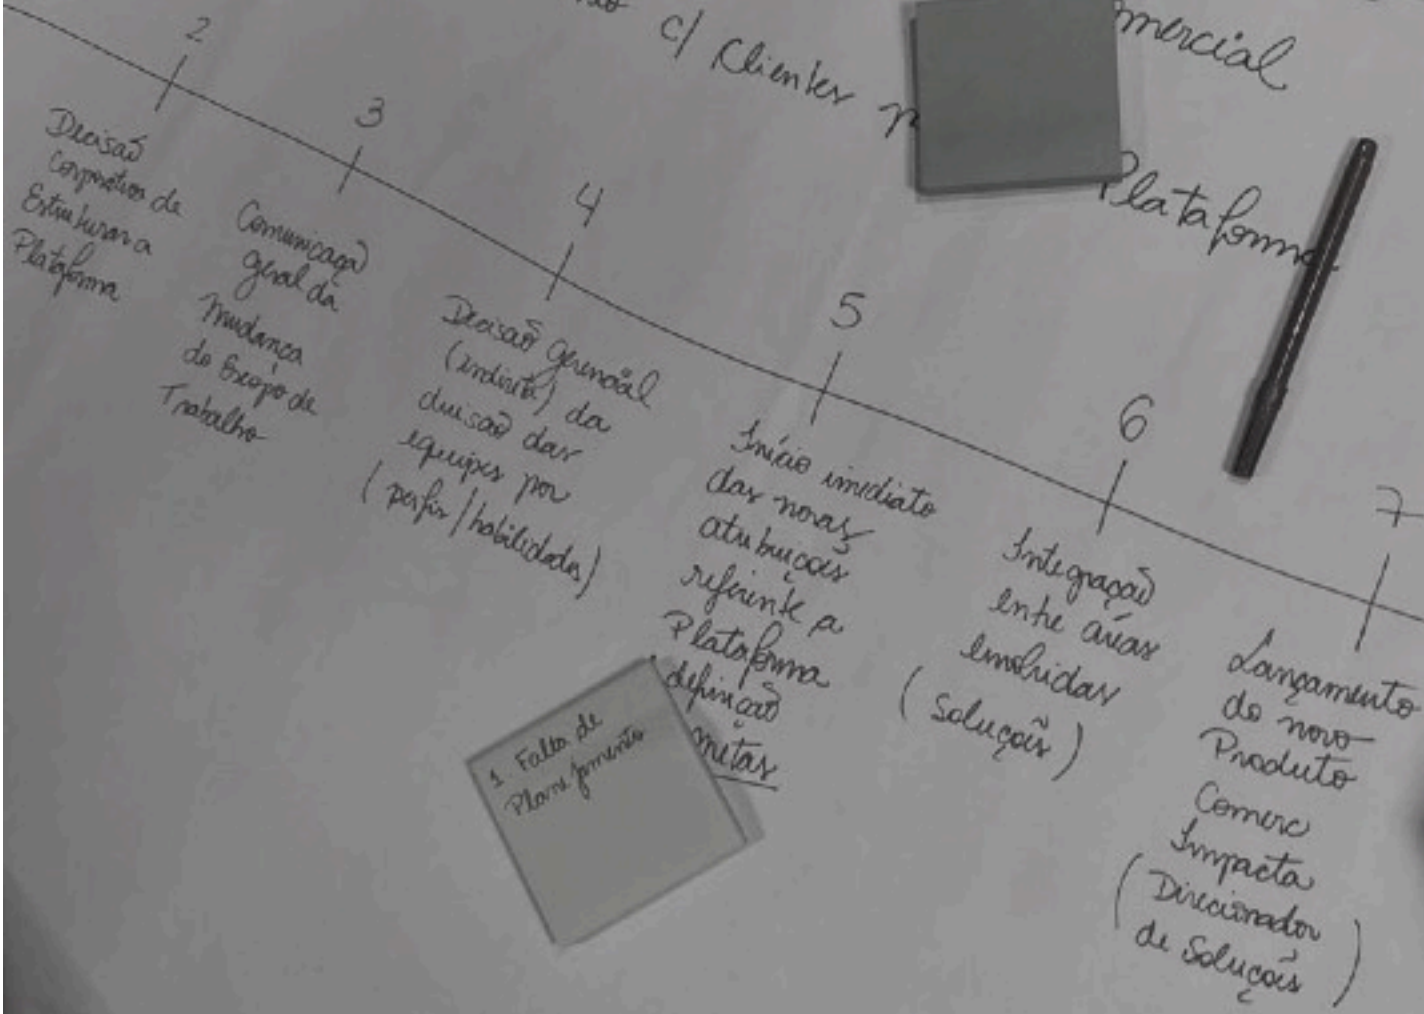 c/ Clientes
mercial
Plataforma
2
Decisão
Corporativa de
Estruturar a
Plataforma
3
Comunicação
geral da
Mudança
do Escopo de
Trabalho
4
Decisão Gerencial
(indireta) da
divisão das
equipes por
(perfis/habilidades)
5
Início imediato
das novas
atribuições
referente a
Plataforma
definição
metas
6
Integração
entre áreas
envolvidas
(Soluções)
7
Lançamento
do novo
Produto
Comerc
Impacta
(Direcionador
de Soluções)
1. Falta de
Planejamento